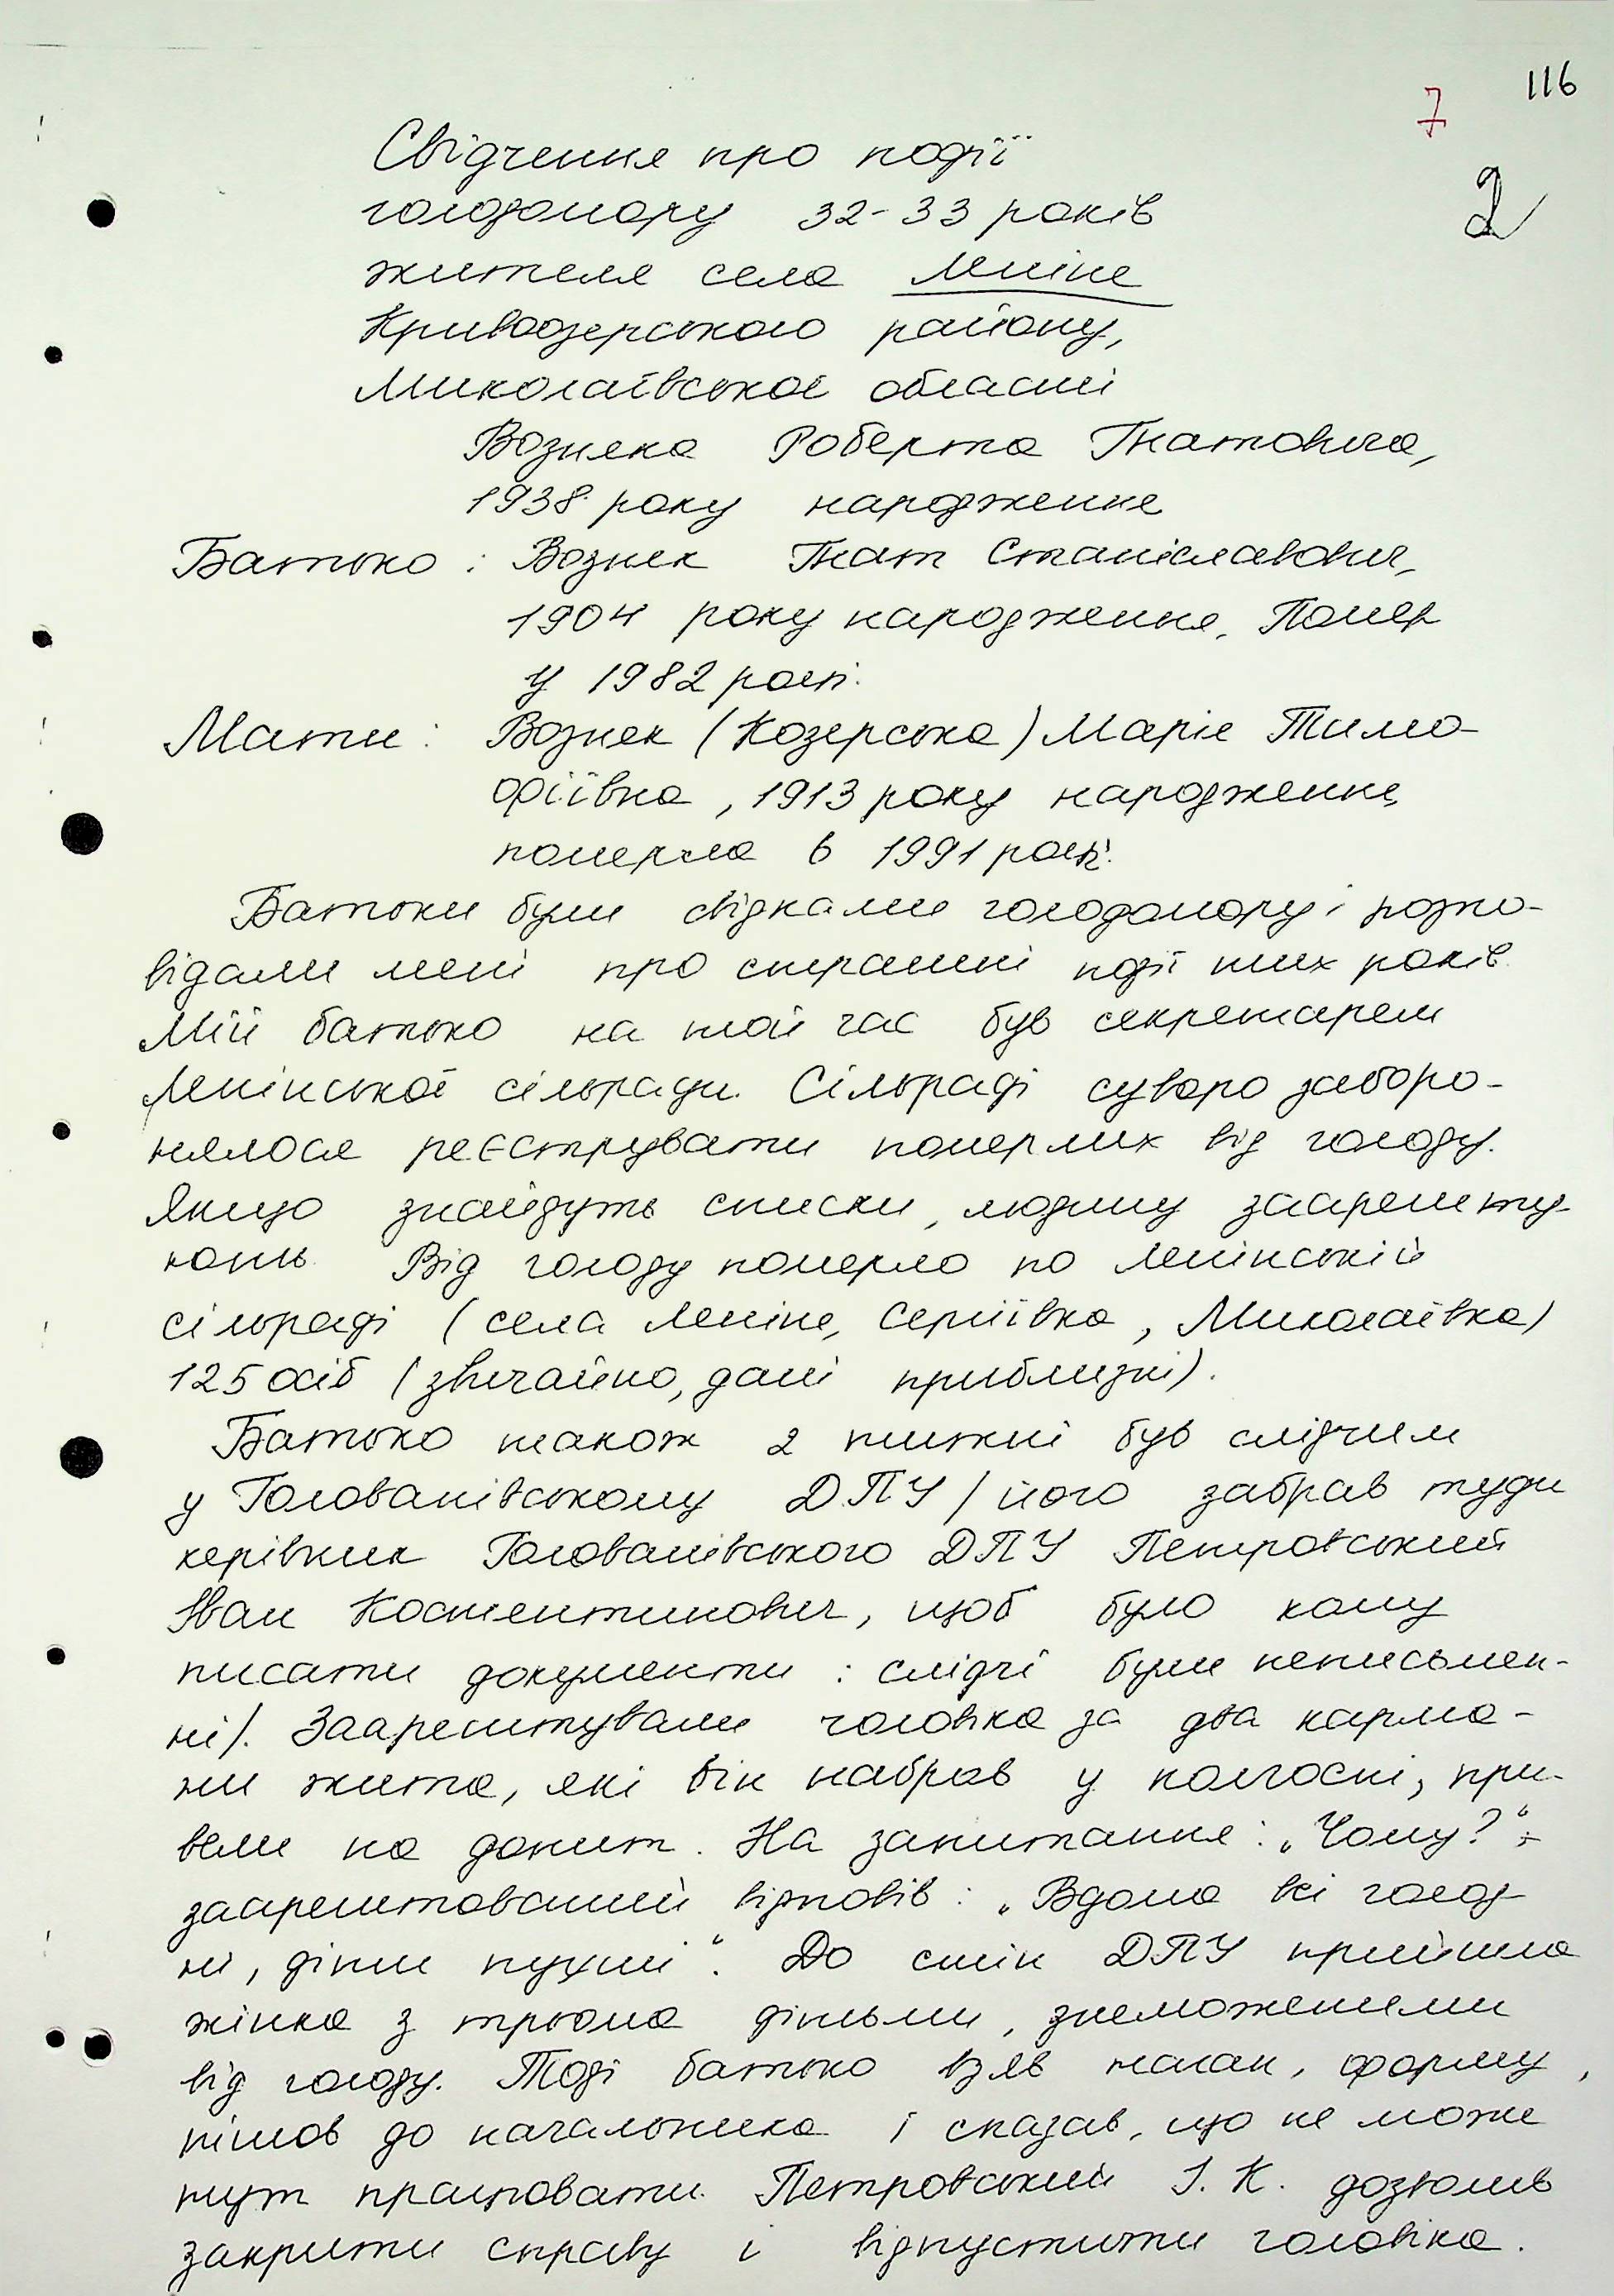 116
7
2
Свідчення про події
голодомору 32-33 років
жителя села Леніне
Кривоозерського району,
Миколаївської області
Возняка Роберта Гнатовича,
1938 року народження
Батько: Возняк Гнат Станіславович,
1904 року народження. Помер
у 1982 році.
Мати: Возняк (Козерська) Марія Тимо-
фіївна, 1913 року народження,
померла в 1991 році.
Батьки були свідками голодомору і розпо-
відали мені про страшні події тих років.
Мій батько на той час був секретарем
Ленінської сільради. Сільраді суворо заборо-
нялося реєструвати померлих від голоду.
Якщо знайдуть списки, людину заарешту-
ють. Від голоду померло по Ленінській
сільраді (села Леніне, Сергіївка, Миколаївка)
125 осіб (звичайно, дані приблизні).
Батько також 2 тижні був слідчим
у Голованівському ДПУ /його забрав туди
керівник Голованівського ДПУ Петровський
Іван Костянтинович, щоб було кому
писати документи: слідчі були неписьмен-
ні/. Заарештували чоловіка за два карма-
ни жита, які він набрав у колгоспі, при-
вели на допит. На запитання: „Чому?“ -
заарештований відповів: „Вдома всі голод-
ні, діти пухлі“. До стін ДПУ прийшла
жінка з трьома дітьми, знеможеними
від голоду. Тоді батько взяв наган, форму,
пішов до начальника і сказав, що не може
тут працювати. Петровський І. К. дозволив
закрити справу і відпустити чоловіка.